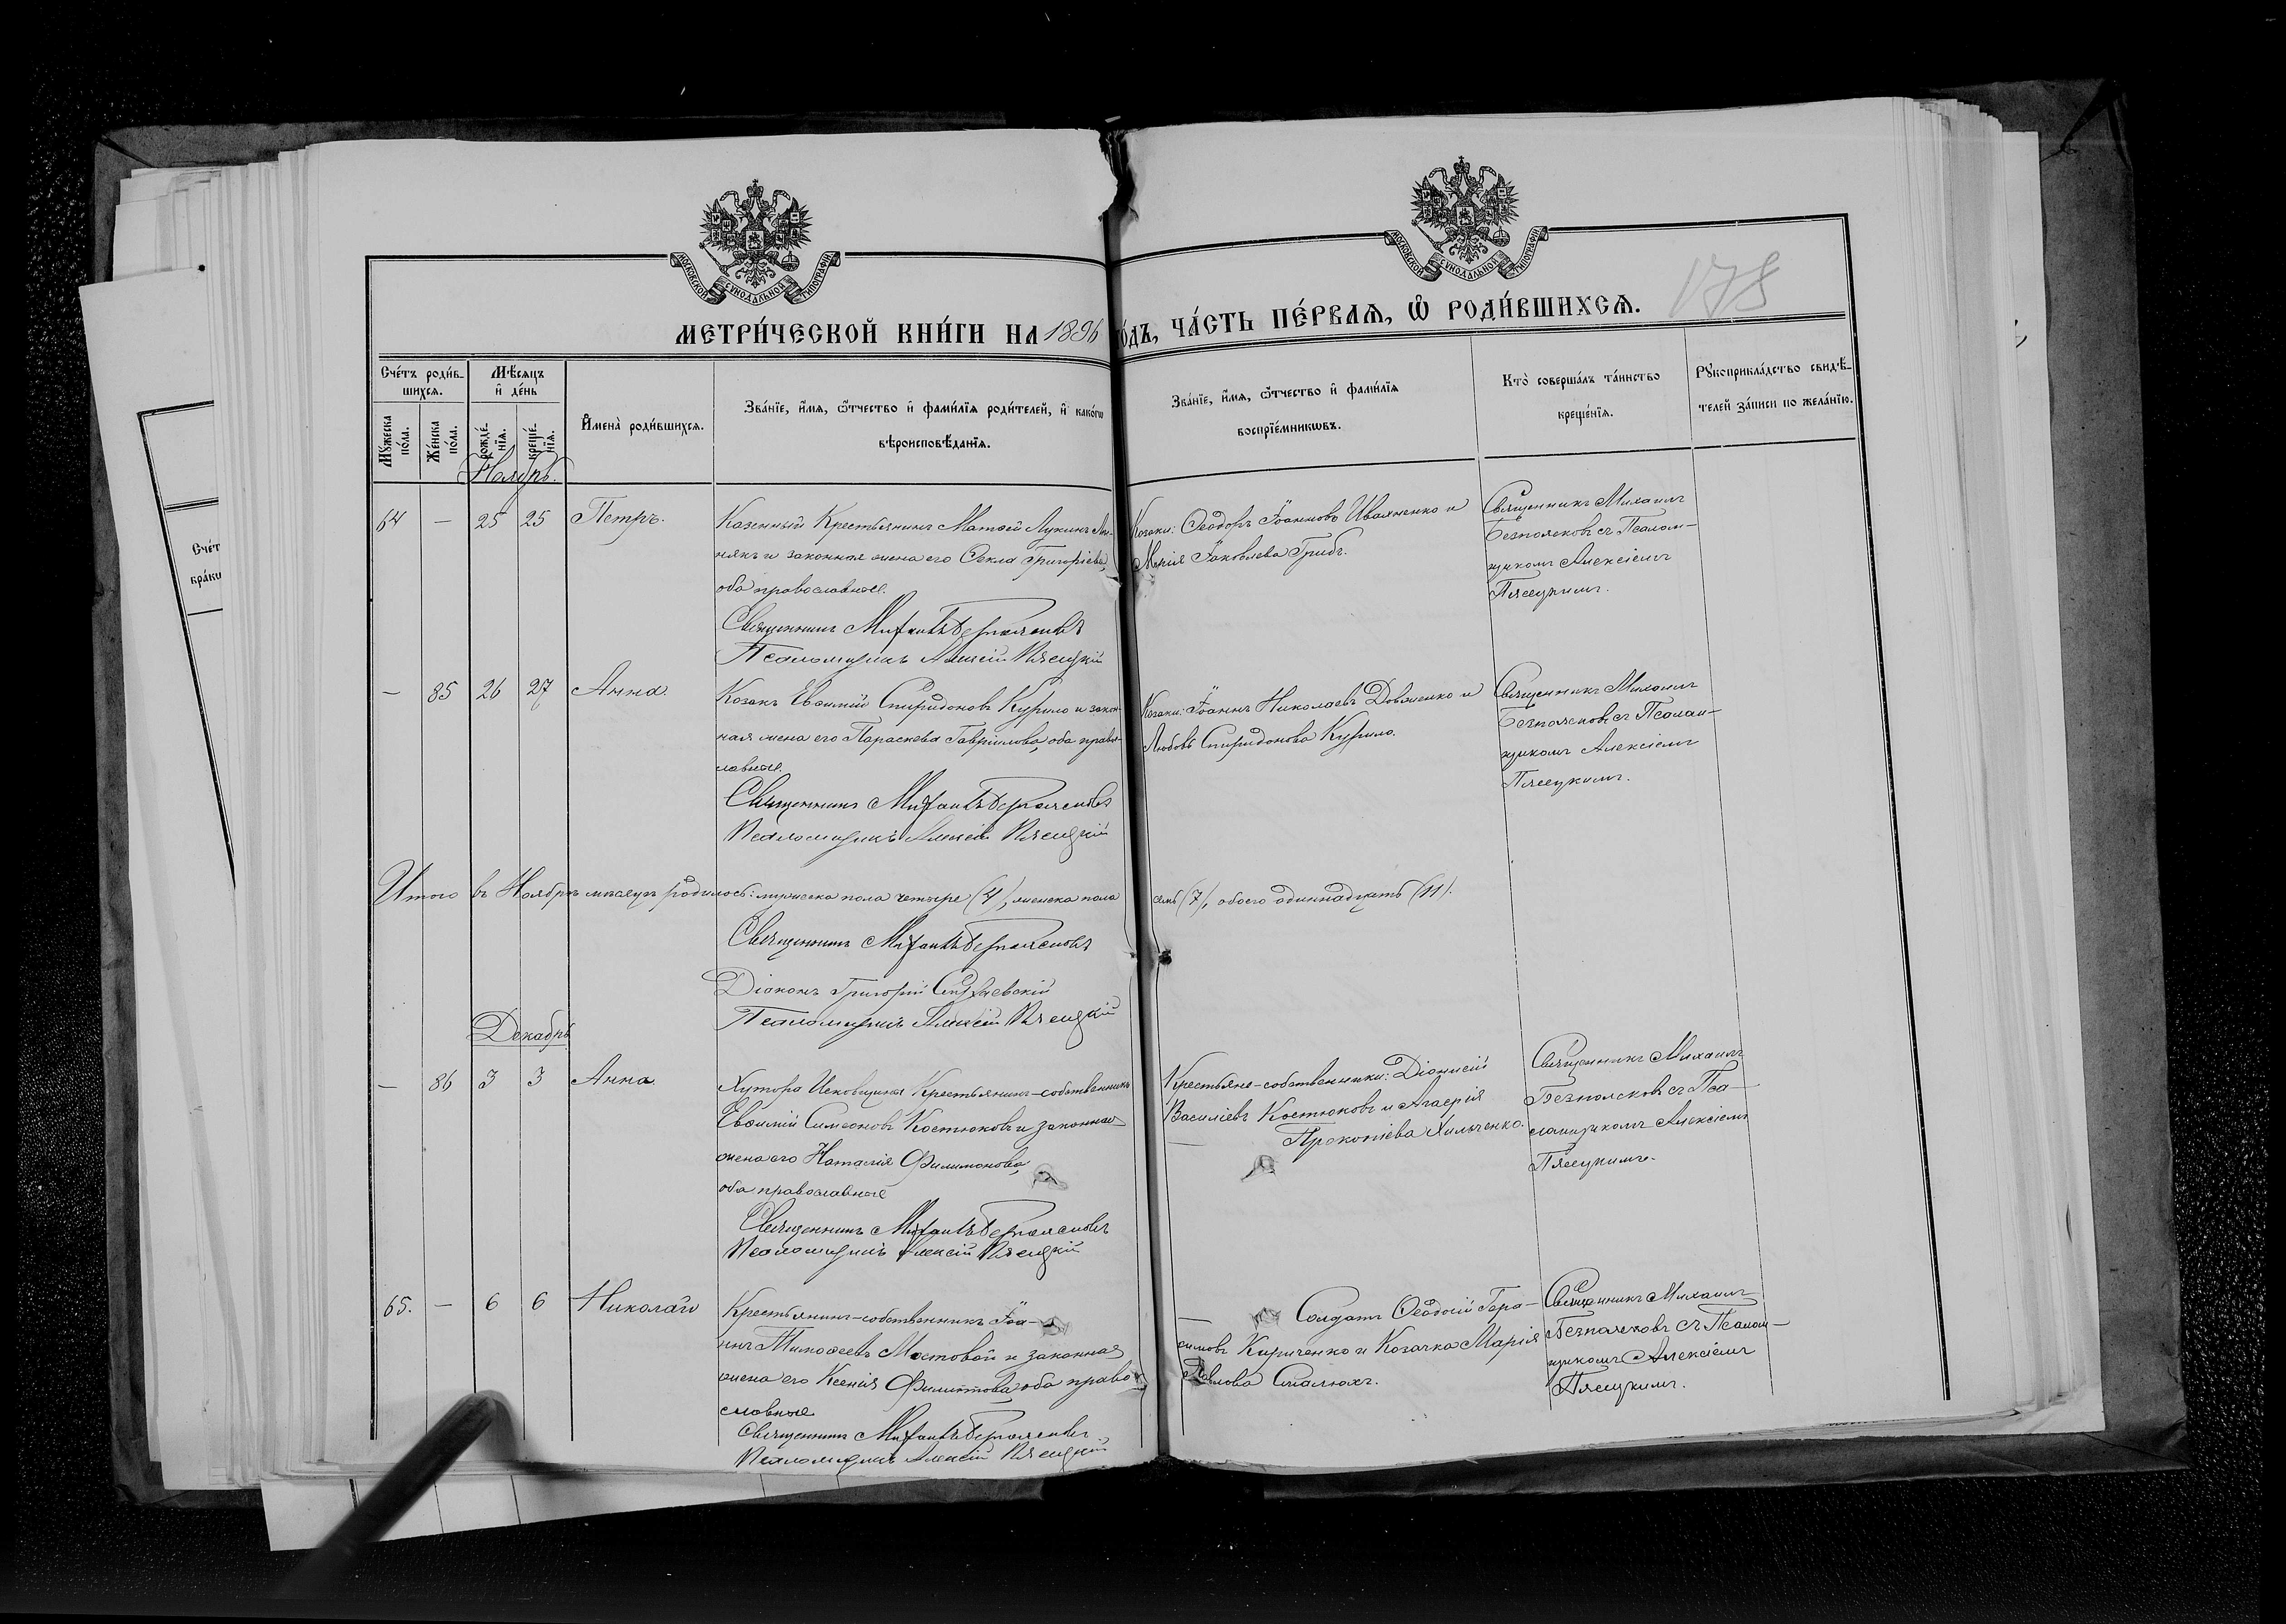 МОСКОВСКОЙ СѴНОДАЛЬНОЙ ТИПОГРАФІИ
МОСКОВСКОЙ СѴНОДАЛЬНОЙ ТИПОГРАФІИ
178
МЕТРИ́ЧЕСКОЙ КНИ́ГИ НА 1896 ГО́ДЪ, ЧА́СТЬ ПЕ́РВАѦ, Ѽ РОДИ́ВШИХСѦ.
Сче́тъ роди́в-
шихся.
Мѣ́сяцъ
и҆ де́нь
Мꙋ́жеска по́ла.
Же́нска по́ла.
рожде́-
нїя.
креще́-
нїя.
И҆мена̀ роди́вшихся.
Зва́нїе, и҆́мя, ѻ҆́тчество и҆ фамѝлїя роди́телей, и҆ како́гѡ
вѣроисповѣ́данїя.
Зва́нїе, и҆́мя, ѻ҆́тчество и҆ фами́лїя
воспрїе́мникѡвъ.
Кто̀ соверша́лъ та́инство
креще́нїя.
Рꙋкоприкла́дство свидѣ́-
телей за́писи по жела́нїю.
Ноябрь.
64 — 25 25 Петръ.
Казенный Крестьянинъ Матѳей Лукинъ
и законная жена его Ѳекла Григоріева,
оба православные.
Священникъ Михаилъ Безпоясковъ
Псаломщикъ Алексій Пясецкій
Козаки: Ѳеодоръ Іоанновъ Ивахненко и
Марія Іаковлева Грибъ.
Священникъ Михаилъ
Безпоясковъ съ Псалом-
щикомъ Алексіемъ
Пясецкимъ.
— 85 26 27 Анна.
Козакъ Евѳимій Спиридоновъ Курило и закон-
ная жена его Параскева Гавріилова, оба право-
славные.
Священникъ Михаилъ Безпоясковъ
Псаломщикъ Алексій Пясецкій
Козаки: Іоаннъ Николаевъ Довженко и
Любовь Спиридонова Курило.
Священникъ Михаилъ
Безпоясковъ съ Псалом-
щикомъ Алексіемъ
Пясецкимъ.
Итого въ Ноябрѣ мѣсяцѣ родилось: мужеска пола четыре (4), женска пола семь (7), обоего одиннадцать (11).
Священникъ Михаилъ Безпоясковъ
Діаконъ Григорій
Псаломщикъ Алексій Пясецкій
Декабрь
— 86 3 3 Анна
Хутора Исковщина Крестьянинъ-собственникъ
Евѳимій Симеоновъ Костюковъ и законная
жена его Наталія Филимонова,
оба православные
Священникъ Михаилъ Безпоясковъ
Псаломщикъ Алексій Пясецкій
Крестьяне-собственники: Діонисій
Василіевъ Костюковъ и Агаѳія
Прокопіева Хильченко.
Священникъ Михаилъ
Безпоясковъ съ Пса-
ломщикомъ Алексіемъ
Пясецкимъ.
65. — 6 6 Николай
Крестьянинъ-собственникъ Іоа-
ннъ Тимоѳеевъ Мостовой и законная
жена его Ксенія Филиппова, оба право-
славные
Священникъ Михаилъ Безпоясковъ
Псаломщикъ Алексій Пясецкій
Солдатъ Ѳеодосій Гера-
симовъ Кириченко и Козачка Марія
Павлова
Священникъ Михаилъ
Безпоясковъ съ Псалом-
щикомъ Алексіемъ
Пясецкимъ.
Сче́т
бра́ки